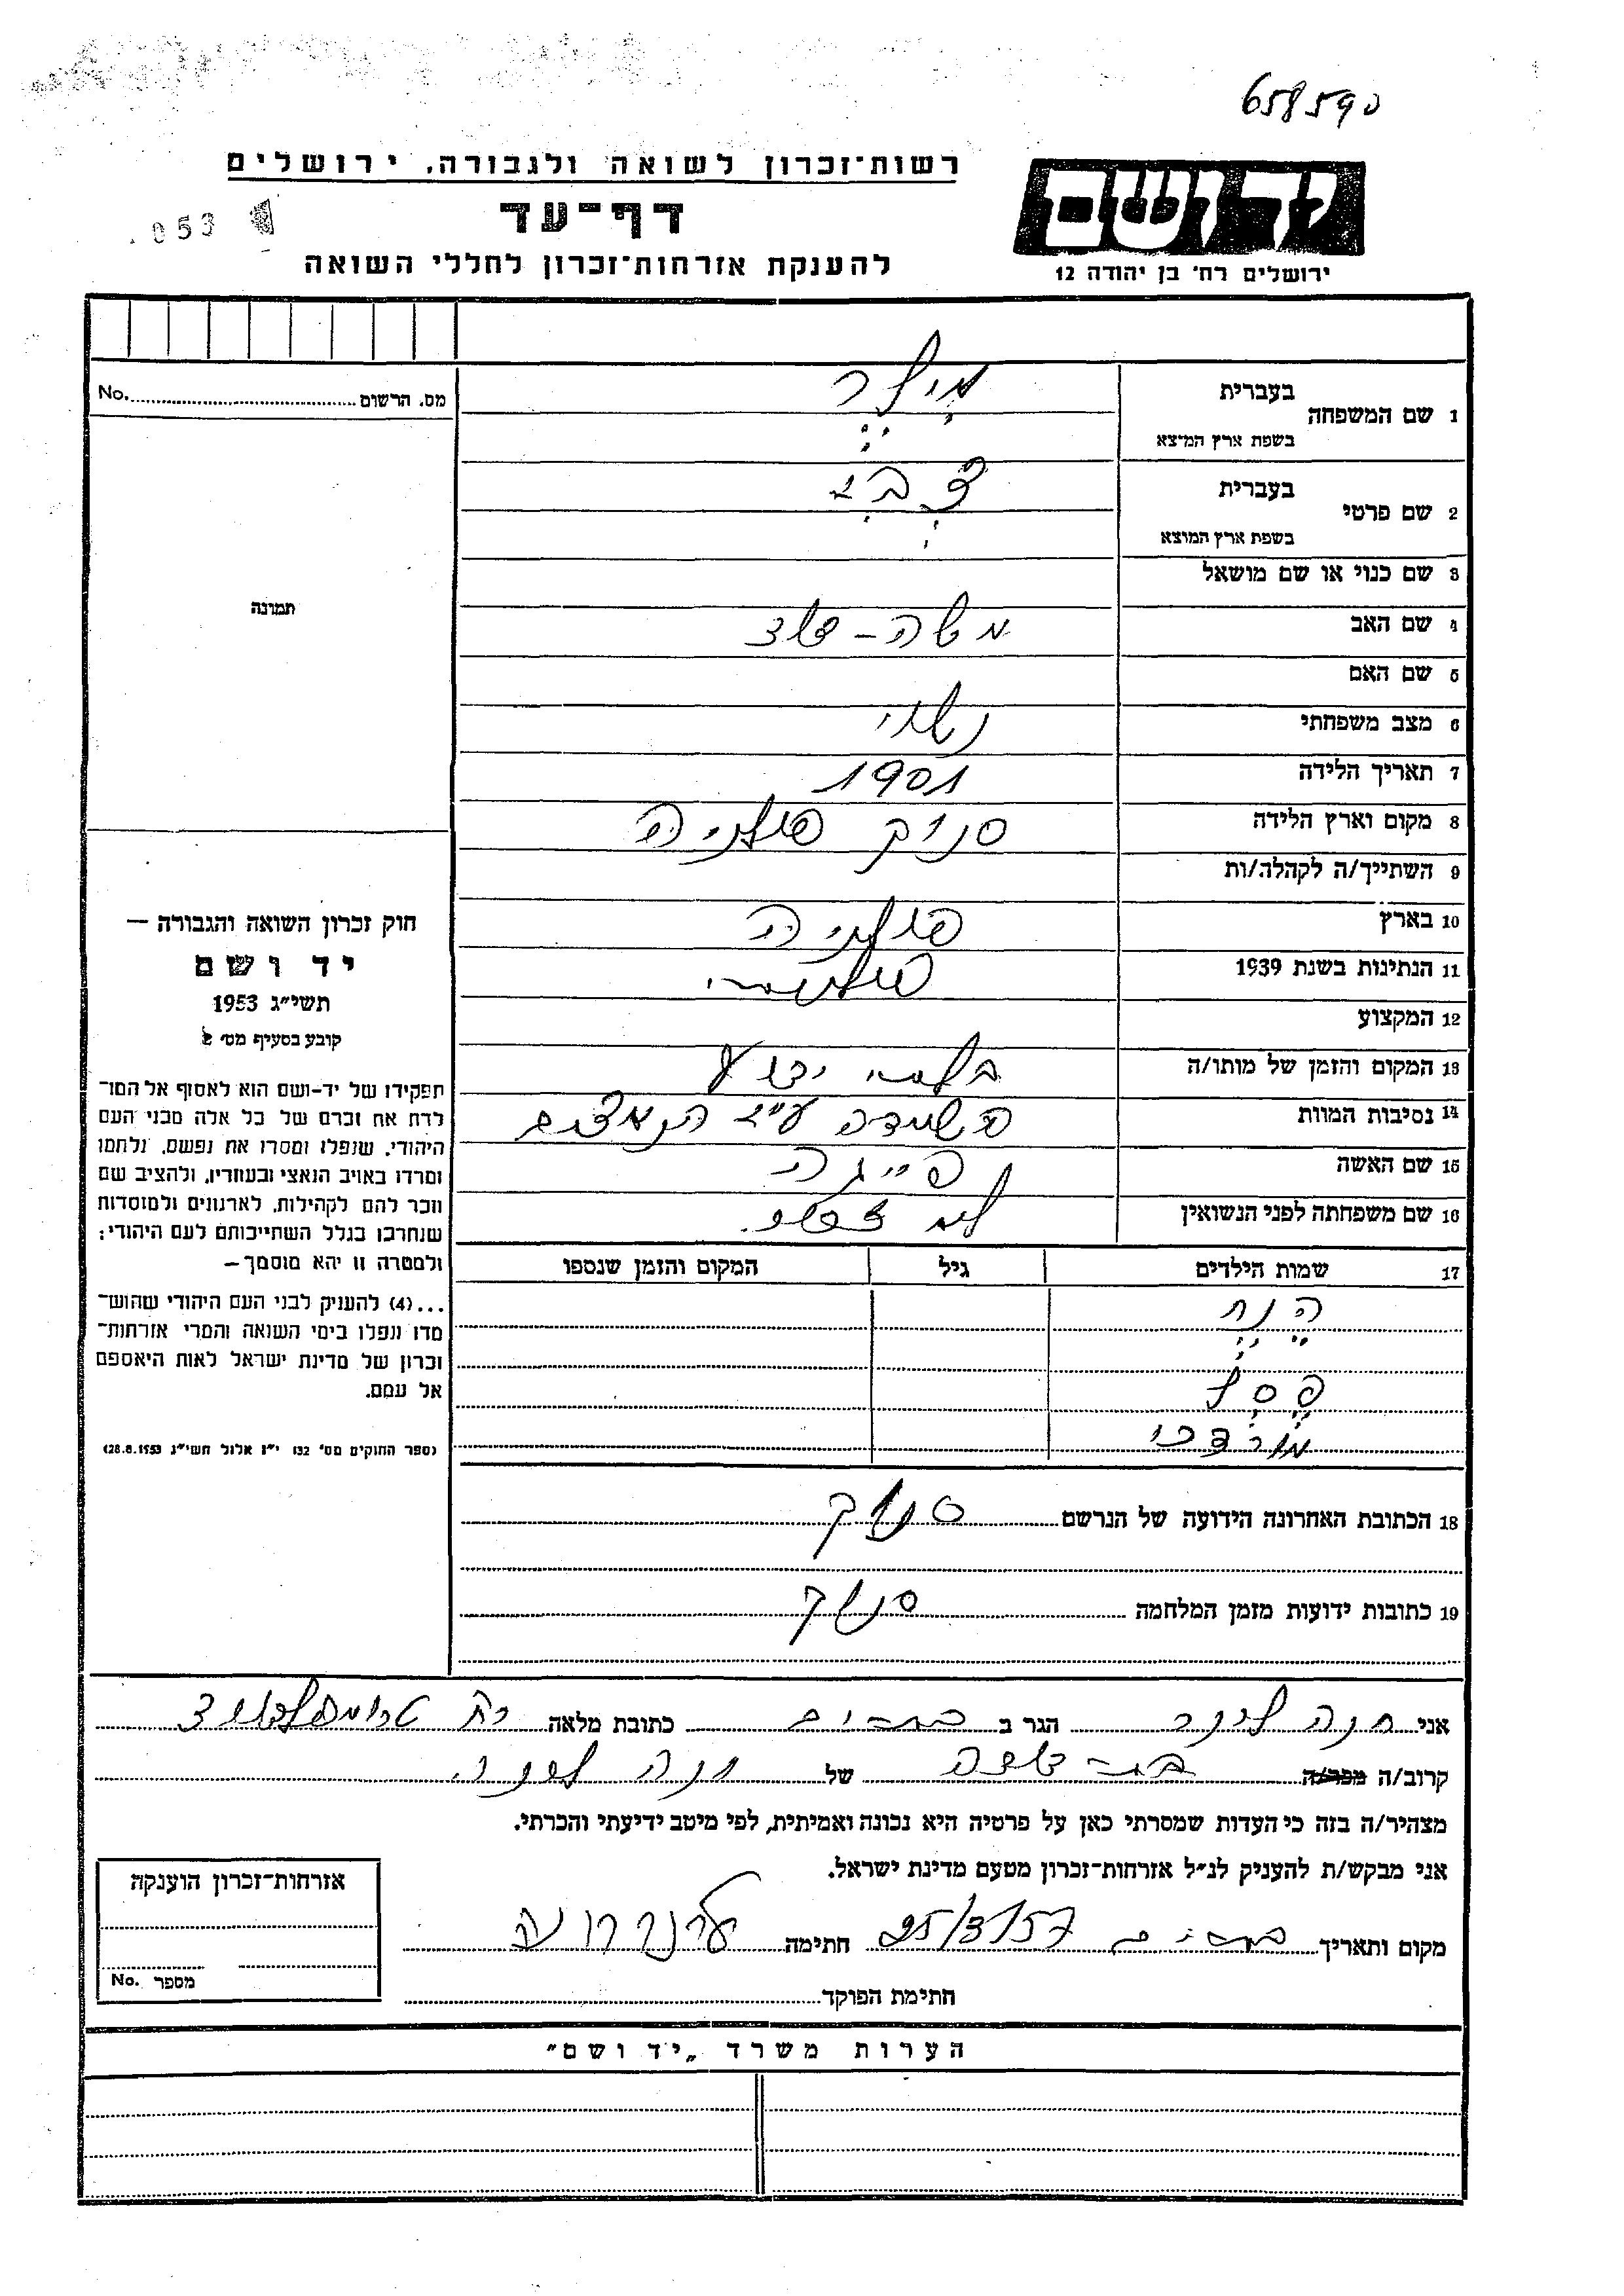 658590
רשות־זכרון לשואה ולגבורה, ירושלים
יד ושם
דף־עד
053
להענקת אזרחות־זכרון לחללי השואה
ירושלים רח' בן יהודה 12
מס. הרשום No.
1 שם המשפחה בעברית מילר
בשפת ארץ המוצא
2 שם פרטי בעברית צבי
בשפת ארץ המוצא
3 שם כנוי או שם מושאל
תמונה
4 שם האב משה-
5 שם האם
6 מצב משפחתי נשוי
7 תאריך הלידה 1901
8 מקום וארץ הלידה סנוק פולניה
9 השתייך/ה לקהלה/ות
10 בארץ פולניה
11 הנתינות בשנת 1939 פולנית
12 המקצוע
13 המקום והזמן של מותו/ה בלתי ידוע
14 נסיבות המוות השמדה ע"י הנאצים
15 שם האשה פייגה
16 שם משפחתה לפני הנשואין
17 שמות הילדים גיל המקום והזמן שנספו
פסל
מורדכי
חוק זכרון השואה והגבורה —
יד ושם
תשי"ג 1953
קובע בסעיף מס' 2
תפקידו של יד-ושם הוא לאסוף אל המו־
לדת את זכרם של כל אלה מבני העם
היהודי, שנפלו ומסרו את נפשם, נלחמו
ומרדו באויב הנאצי ובעוזריו, ולהציב שם
וזכר להם לקהילות, לארגונים ולמוסדות
שנחרבו בגלל השתייכותם לעם היהודי;
ולמטרה זו יהא מוסמך —
...(4) להעניק לבני העם היהודי שהוש־
מדו ונפלו בימי השואה והמרי אזרחות־
זכרון של מדינת ישראל לאות היאספם
אל עמם.
(ספר החוקים מס' 132 י"ז אלול תשי"ג 28.8.1953)
18 הכתובת האחרונה הידועה של הנרשם סנוק
19 כתובות ידועות מזמן המלחמה סנוק
אני חנה לינר הגר ב בת-ים כתובת מלאה רח
קרוב/ה מכר/ה של
מצהיר/ה בזה כי העדות שמסרתי כאן על פרטיה היא נכונה ואמיתית, לפי מיטב ידיעתי והכרתי.
אני מבקש/ת להעניק לנ"ל אזרחות־זכרון מטעם מדינת ישראל.
מקום ותאריך בת-ים 25/3/57 חתימה לינר חנה
חתימת הפוקד
אזרחות־זכרון הוענקה
מספר No.
הערות משרד „יד ושם"